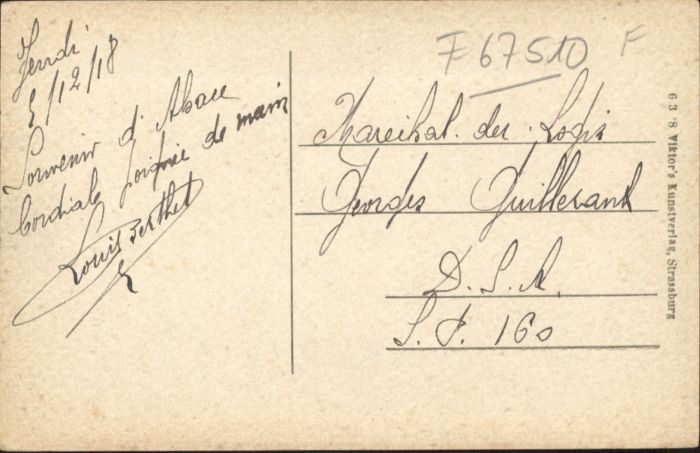 Jeudi
5/12/18
Souvenir d'Alsace
Cordiale poignée de main
Louis Berthet
F 67510 F
Marechal. des. Logis
Georges Guillerand
D. S. A.
S. P. 160
6 3 '8 Viktor's Kunstverlag, Strassburg